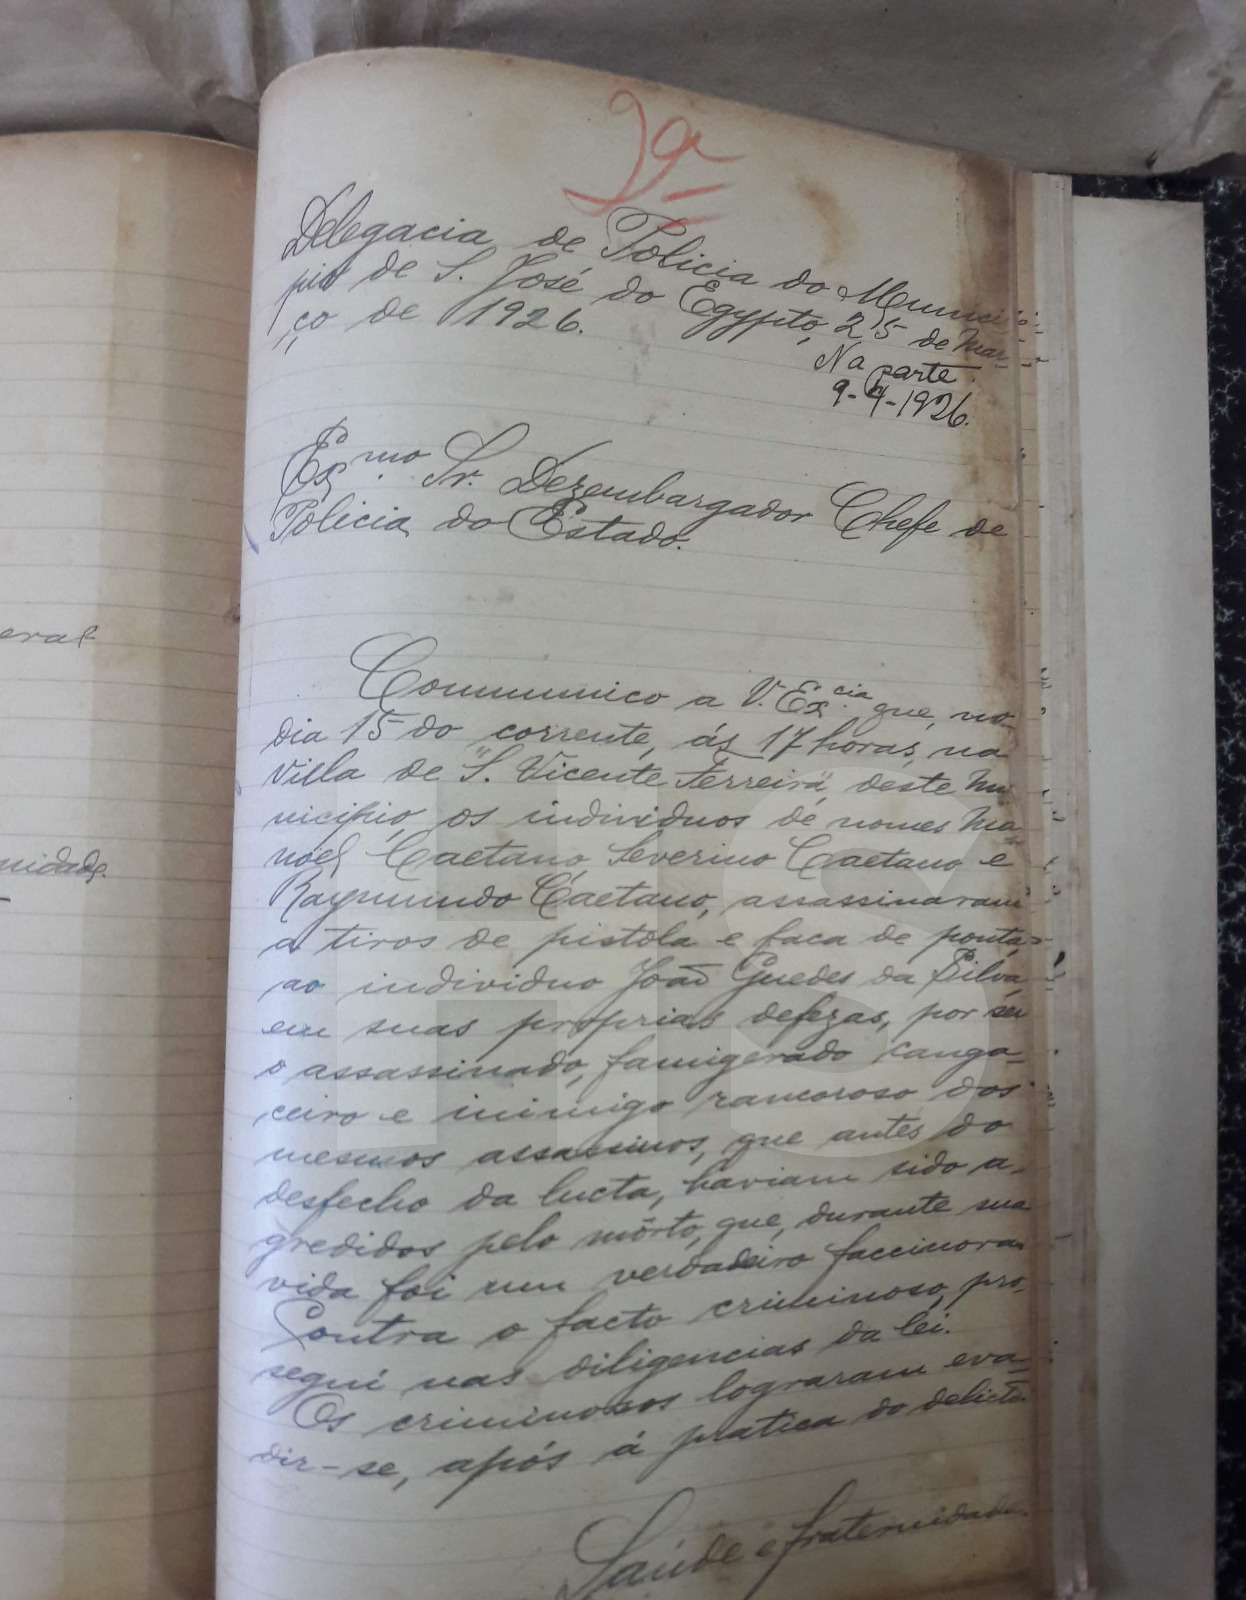 2a
Delegacia de Policia do Munici
pio de S. José do Egypto, 25 de Mar-
ço de 1926.
Na parte.
9-4-1926.
Exmo. Sr. Dezembargador Chefe de
Policia do Estado.
Communico a V. Excia. que, no
dia 15 do corrente, ás 17 horas, na
Villa de "S. Vicente Ferreira", deste Mu
nicipio, os individuos de nomes Ma
noel Caetano Severino Caetano e
Raymundo Caetano, assassinaram
a tiros de pistola e faca de ponta
ao individuo João Guedes da Silva,
em suas proprias defezas, por ser
o assassinado, famigerado canga-
ceiro e inimigo rancoroso dos
mesmos assassinos, que antes do
desfecho da lucta, haviam sido a-
gredidos pelo môrto, que, durante sua
vida foi um verdadeiro faccinora.
Contra o facto criminoso, pro-
segui nas diligencias da lei.
Os criminosos lograram eva-
dir-se, após á pratica do delicto.
Saúde e fraternidade
eral
nidade.
HS